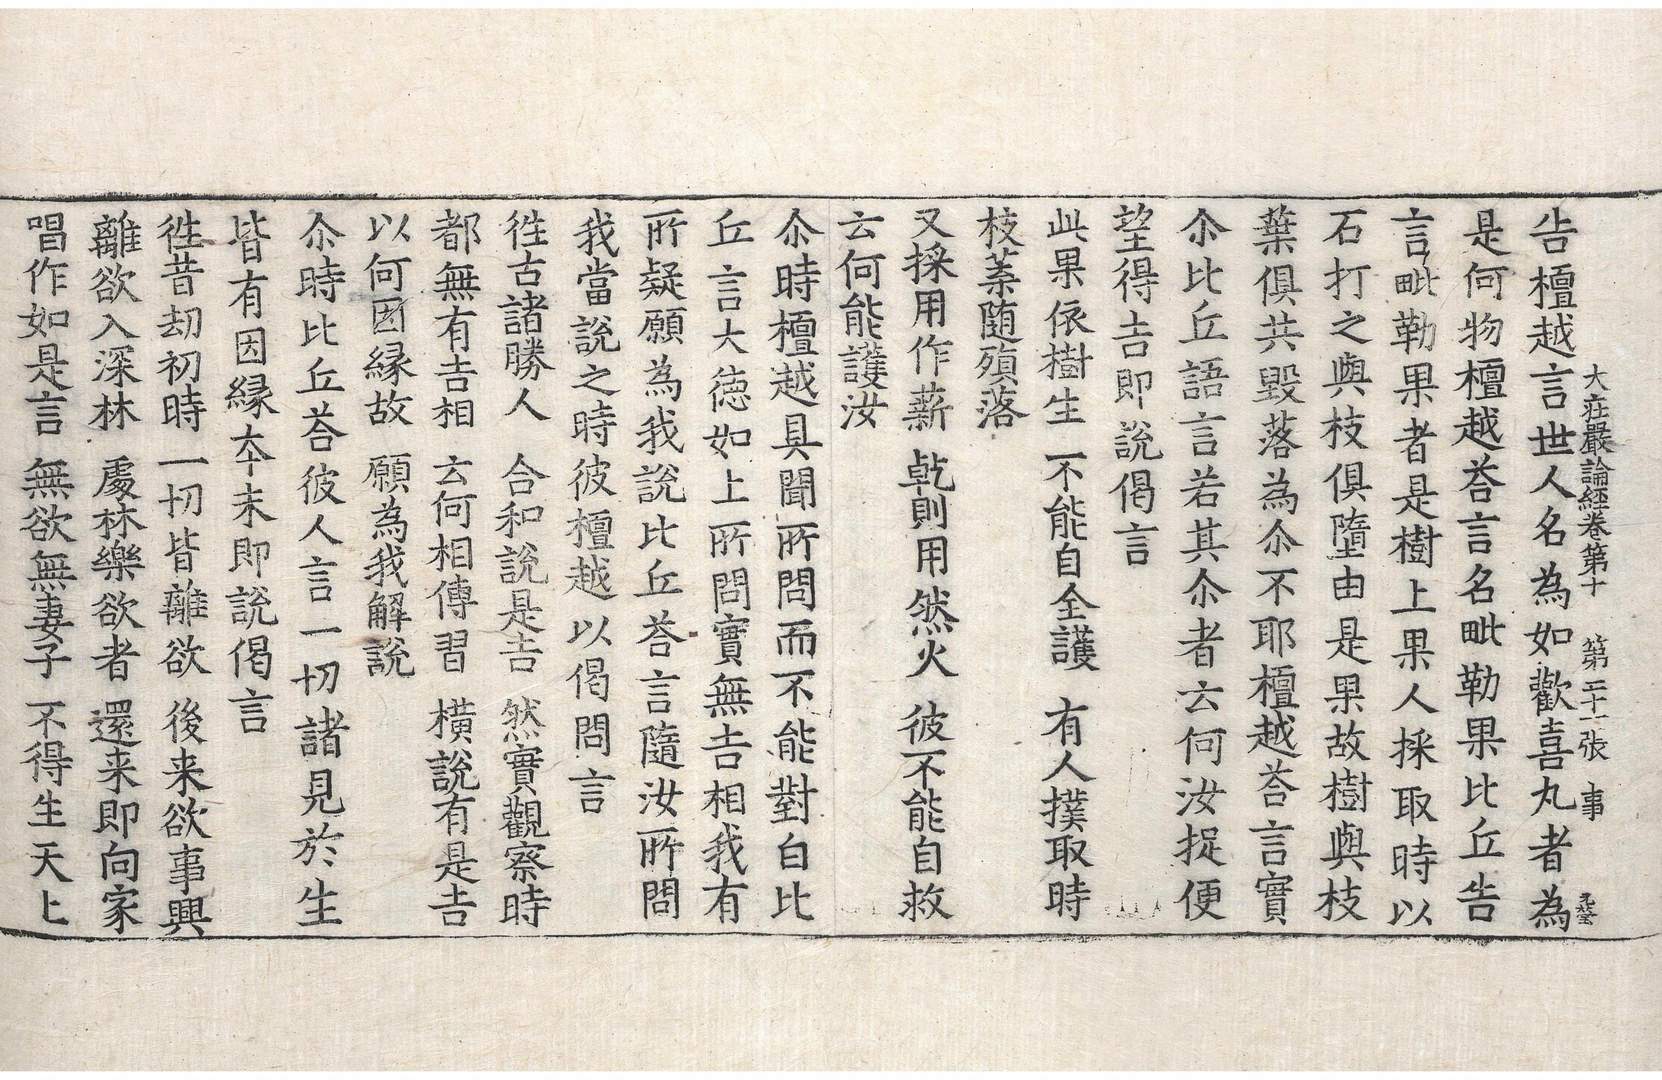 告檀越言世人名為如歡喜丸者為
大莊嚴論經卷第十 第二十一張 事
是何物檀越荅言名毗勒果比丘告
言毗勒果者是樹上果人採取時以
石打之與枝俱墮由是果故樹與枝
葉俱共毀落為尒不耶檀越荅言實
尒比丘語言若其尒者云何汝捉便
望得吉即說偈言
此果依樹生 不能自全護 有人撲取時
枝葉随殞落
又採用作薪 乾則用然火 彼不能自救
云何能護汝
尒時檀越具聞所問而不能對白比
丘言大德如上所問實無吉相我有
所疑願為我說比丘荅言隨汝所問
我當說之時彼檀越以偈問言
徃古諸勝人 合和說是吉 然實觀察時
都無有吉相 云何相傳習 橫說有是吉
以何因縁故 願為我解說
尒時比丘荅彼人言一切諸見於生
皆有因縁夲末即說偈言
徃昔劫初時 一切皆離欲 後来欲事興
離欲入深林 處林樂欲者 還来即向家
唱作如是言 無欲無妻子 不得生天上